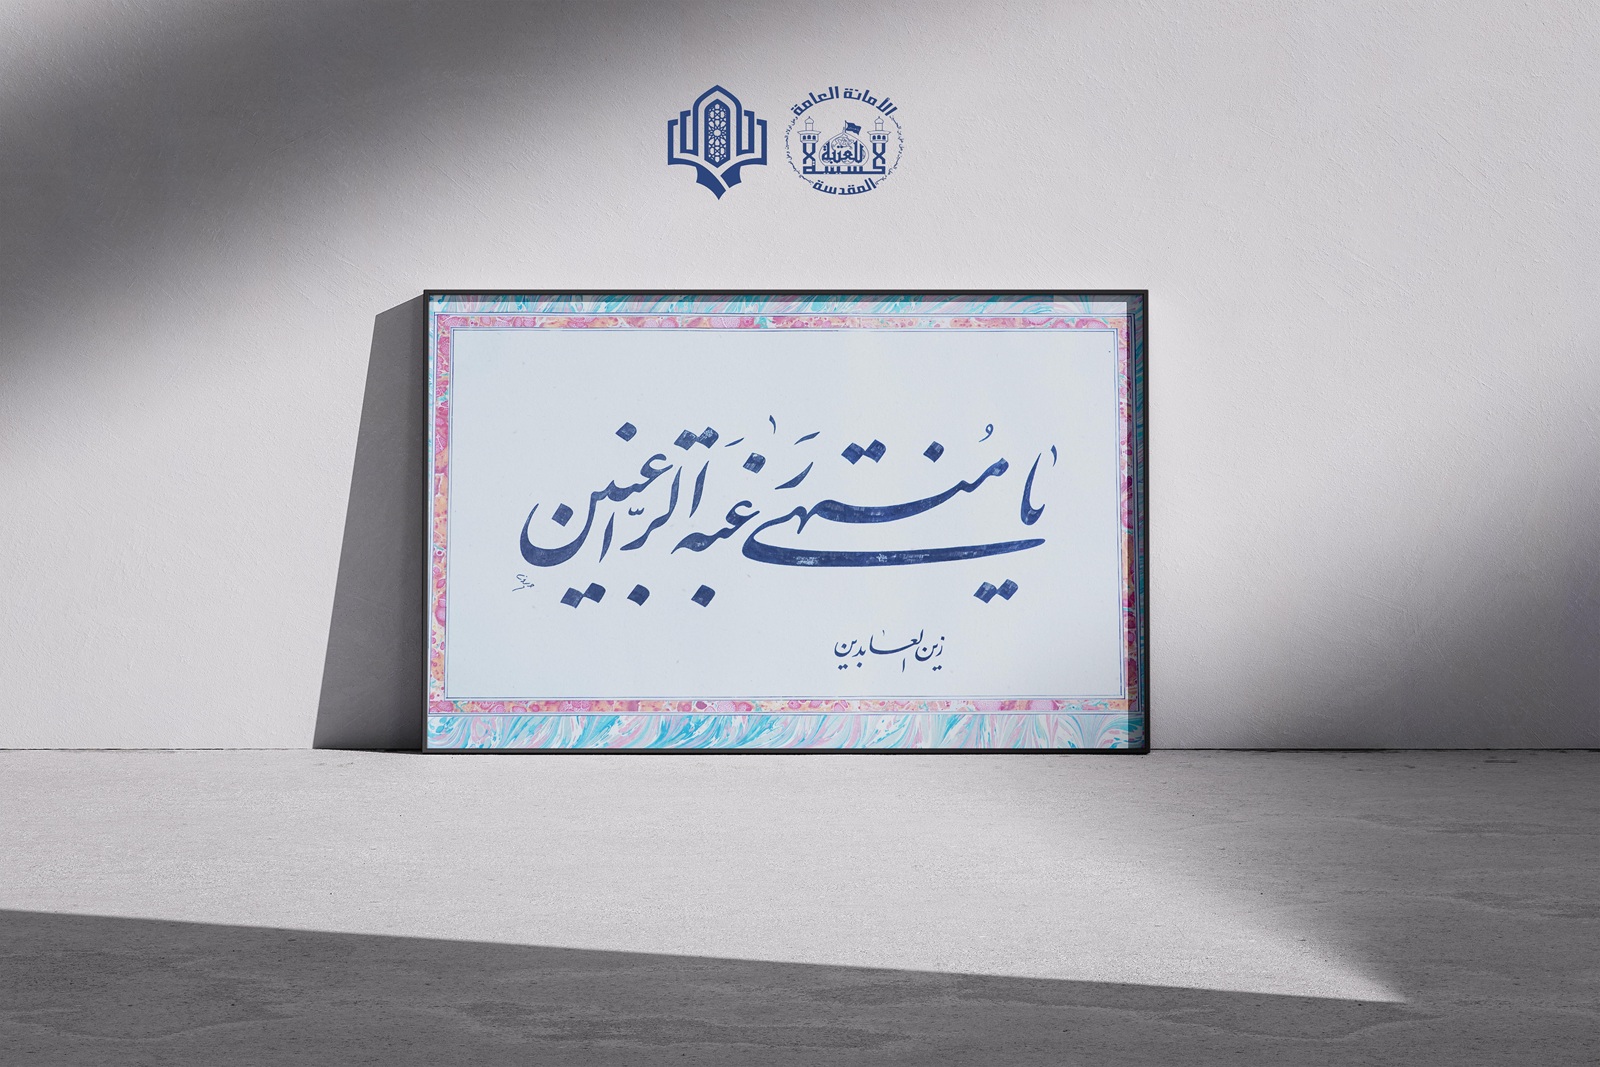 الأمانة العامة
للعتبة
الحسينية
المقدسة
يا مُنتهى رَغبَة الرّاغبين
زين العابدين